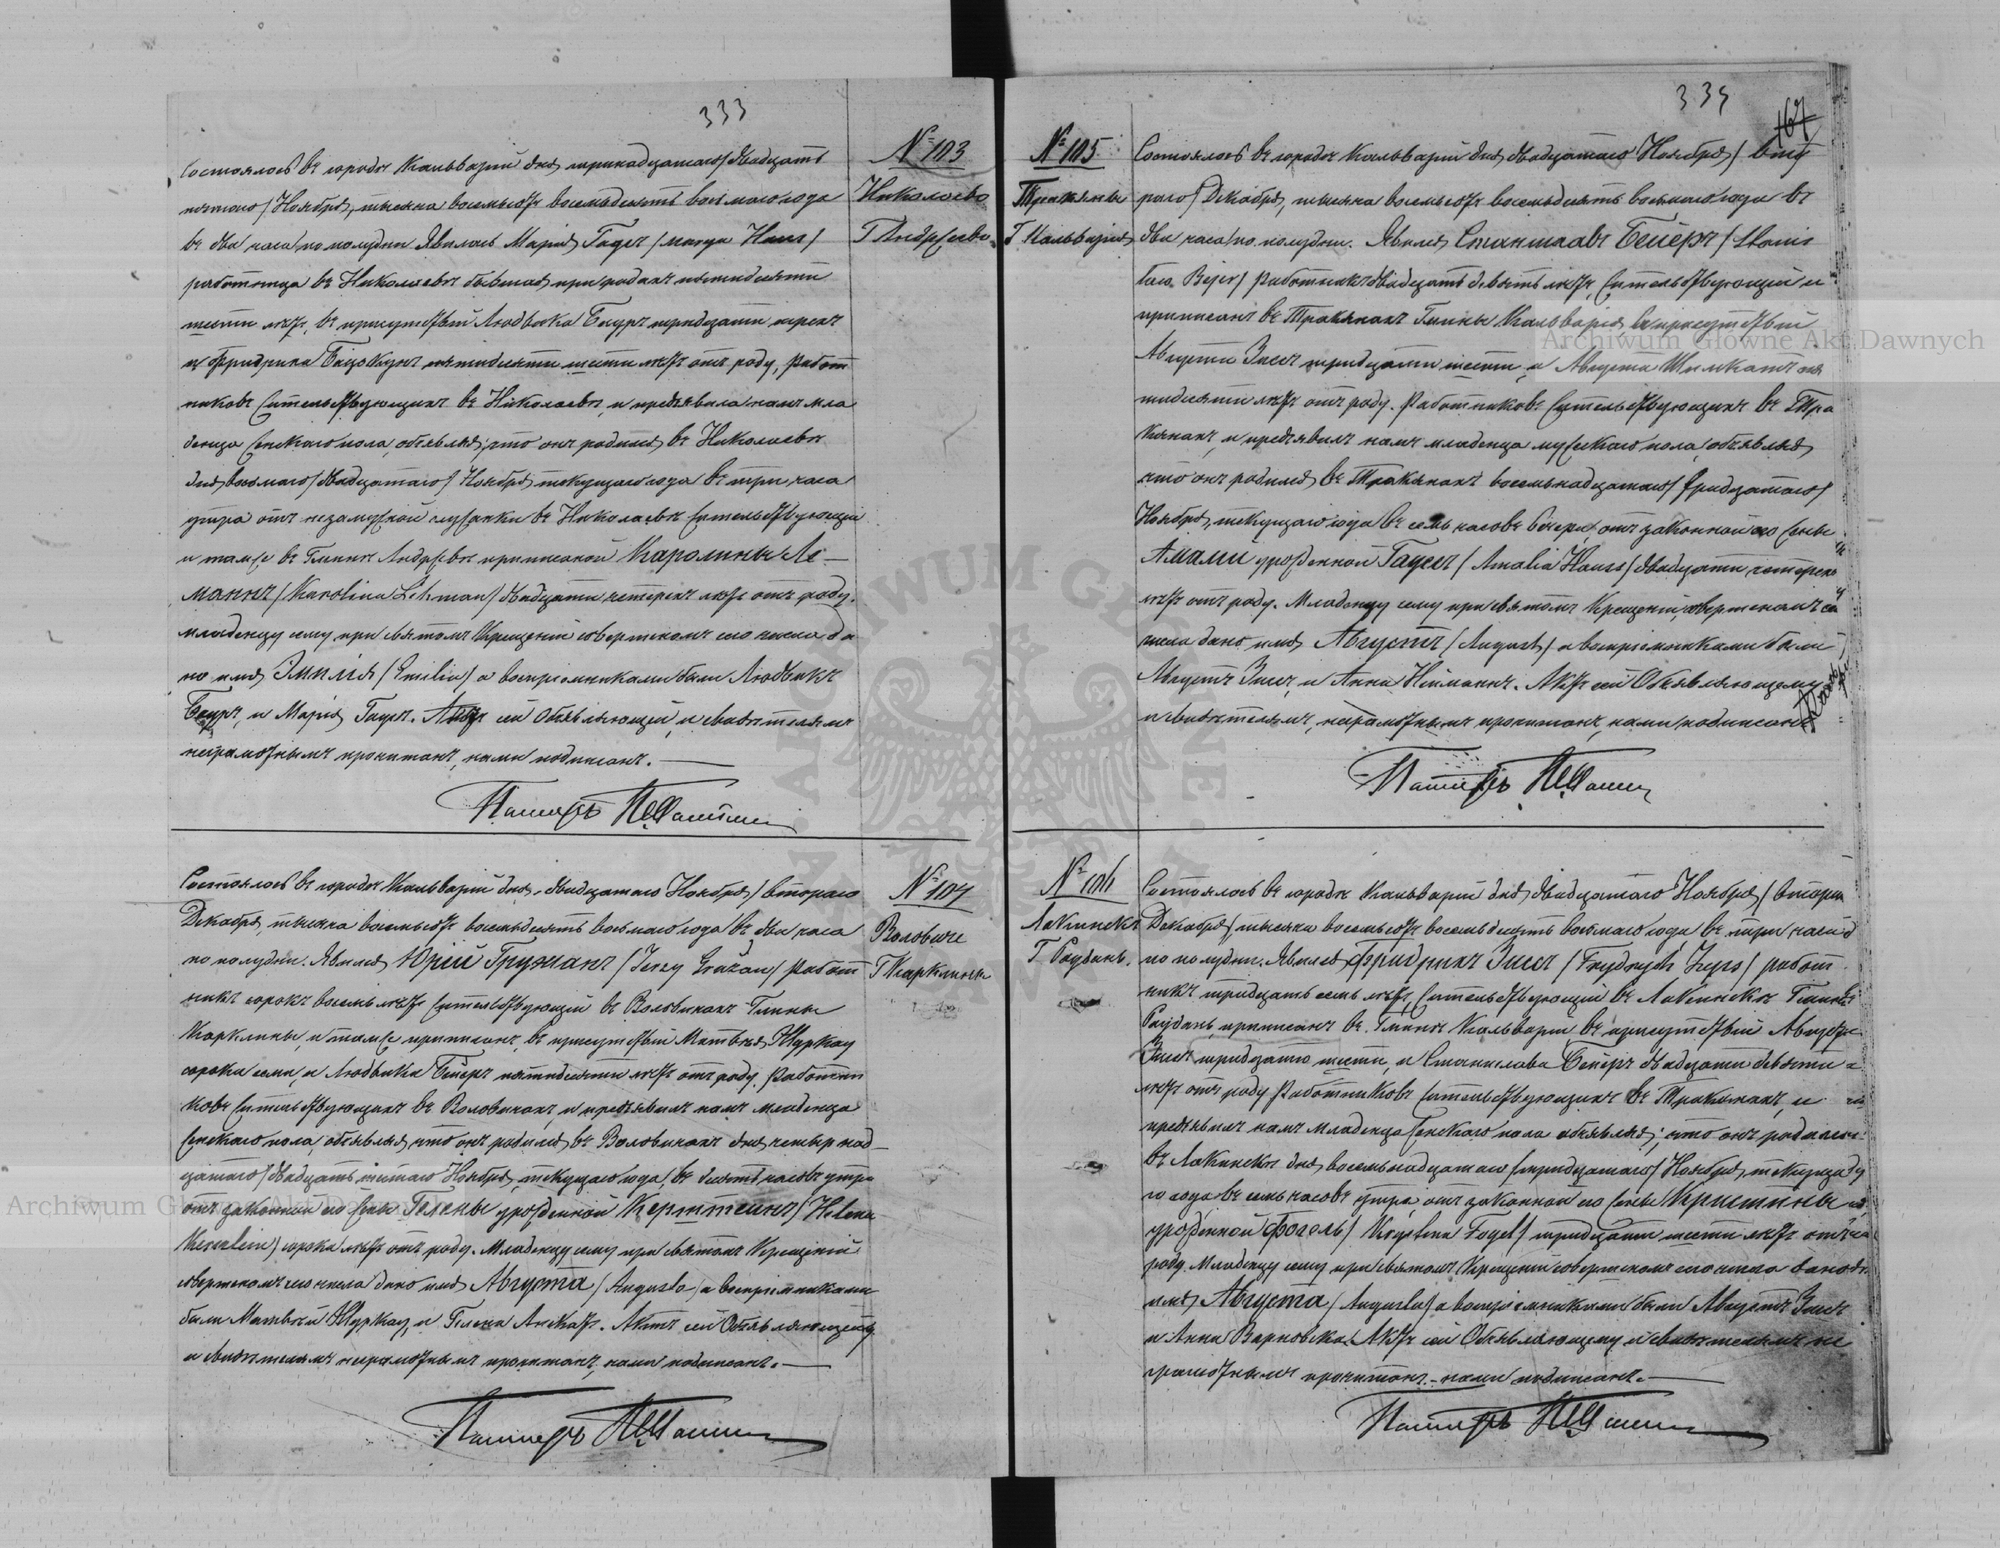 333
№ 103
Николаево
Г. Андрѣево
Состоялось въ городѣ Кальваріи дня тринадцатаго/двадцать
пятаго/Ноября, тысяча восемьсотъ восемьдесятъ восьмаго года
въ два часа по полудни. Явилась Марія Гаусъ /Marya Haus/
работница въ Николаевѣ бывшая при родахъ пятидесяти
шести лѣтъ, въ присутствіи Людвика Бауръ тридцати трехъ
и Фридриха пятидесяти шести лѣтъ отъ роду, работ
никовъ жительствующихъ въ Николаевѣ, и предъявила намъ мла
денца женскаго пола, объявляя, что онъ родился въ Николаевѣ
дня восьмаго/двадцатаго/Ноября текущаго года въ три часа
утра отъ незамужной служанки въ Николаевѣ жительствующей
и тамже въ Гминѣ Андрѣевѣ приписаной Каролины Ле-
манъ /Karolina Lehman/ двадцати четырехъ лѣтъ отъ роду.
Младенцу сему при святомъ Крещеніи совершенномъ сего числа да
но имя Эмилія /Emilia/ а воспріемниками были Людвикъ
Бауръ, и Марія Гаусъ. Актъ сей Объявляющей, и свидѣтелямъ
неграмотнымъ прочитанъ, нами подписанъ.—
Пасторъ
№ 104
Воловиче
Г. Карклины
Состоялось въ городѣ Кальваріи дня двадцатаго Ноября/втораго
Декабря, тысяча восемьсотъ восемьдесятъ восьмаго года въ два часа
по полудни. Явился Юрій Гружанъ /Jerzy Gružan/ работ
никъ сорокъ восемь лѣтъ жительствующій въ Воловичахъ Гмины
Карклины, и тамже приписанъ, въ присутствіи Матвѣя Журкау
сорока семи, и Людвика Бейеръ пятидесяти лѣтъ отъ роду работни
ковъ жительствующихъ въ Воловичахъ, и предъявилъ намъ младенца
женскаго пола, объявляя, что онъ родился въ Воловичахъ дня четырнад-
цатаго/двадцать шестаго Ноября, текущаго года, въ десять часовъ утра
отъ законной его жены Гелены урожденной /Helena
сорока лѣтъ отъ роду. Младенцу сему при святомъ Крещеніи
совершенномъ сего числа дано имя Августа /Augusta/ а воспріемниками
были Матвѣй Журкау, и Гелена Актъ сей Объявляющему
и свидѣтелямъ неграмотнымъ прочитанъ, нами подписанъ.—
Пасторъ
334
167
№ 105
Тракяны
Г. Кальварія
Состоялось въ городѣ Кальваріи дня двадцатаго Ноября/вто
раго/Декабря, тысяча восемьсотъ восемьдесятъ восьмаго года въ
два часа по полудни. Явился Станиславъ Бейеръ /Stanis
ław Bejer/ работникъ двадцать девять лѣтъ, жительствующій и
приписанъ въ Тракянахъ Гмины Кальварія, въ присутствіи
Августа Зисъ тридцати шести, и Августа пя
тидесяти лѣтъ отъ роду. Работниковъ жительствующихъ въ Тра
кянахъ, и предъявилъ намъ младенца мужескаго пола, объявляя
что онъ родился въ Тракянахъ восемьнадцатаго/тридцатаго/
Ноября, текущаго года въ семь часовъ вечера, отъ законной его жены
Амаліи урожденной Гаусъ /Amalia Hauss/ двадцати четырехъ
лѣтъ отъ роду. Младенцу сему при святомъ Крещеніи, совершенномъ сего
числа дано имя Августъ /August/ а воспріемниками были
Августъ Зисъ и Анна Нейманъ. Актъ сей Объявляющему
и свидѣтелямъ, неграмотнымъ прочитанъ, нами подписанъ
Пасторъ
№ 106
Лакинскъ
Г. Раудань.
Состоялось въ городѣ Кальваріи дня двадцатаго Ноября/втораго
Декабря/тысяча восемьсотъ восемьдесятъ восьмаго года въ три часа
по полудни. Явился Фридрихъ Зисъ /Frydrych Zyss/ работ
никъ тридцать семь лѣтъ, жительствующій въ Лакинскѣ Гмины
Раудань, приписанъ въ Гминѣ Кальваріи въ присутствіи Августа
Зисъ тридцати шести, и Станислава Бейеръ двадцати девяти
лѣтъ отъ роду работниковъ жительствующихъ въ Тракянахъ, и
предъявилъ намъ младенца женскаго пола объявляя, что онъ родился
въ Лакинскѣ дня восемьнадцатаго/тридцатаго/Ноября, текуща
го года въ семь часовъ утра отъ законной его жены Кристины
урожденной Фогель /Krystina Fogel/ тридцати шести лѣтъ отъ
роду. Младенцу сему при святомъ Крещеніи совершенномъ сего числа дано
имя Августа /Augusta/ а воспріемниками были Августъ Зисъ
и Анна Варновска. Актъ сей Объявляющему и свидѣтелямъ не
грамотнымъ прочитанъ нами подписанъ.—
Пасторъ
Archiwum Główne Akt Dawnych
Archiwum Główne Akt Dawnych